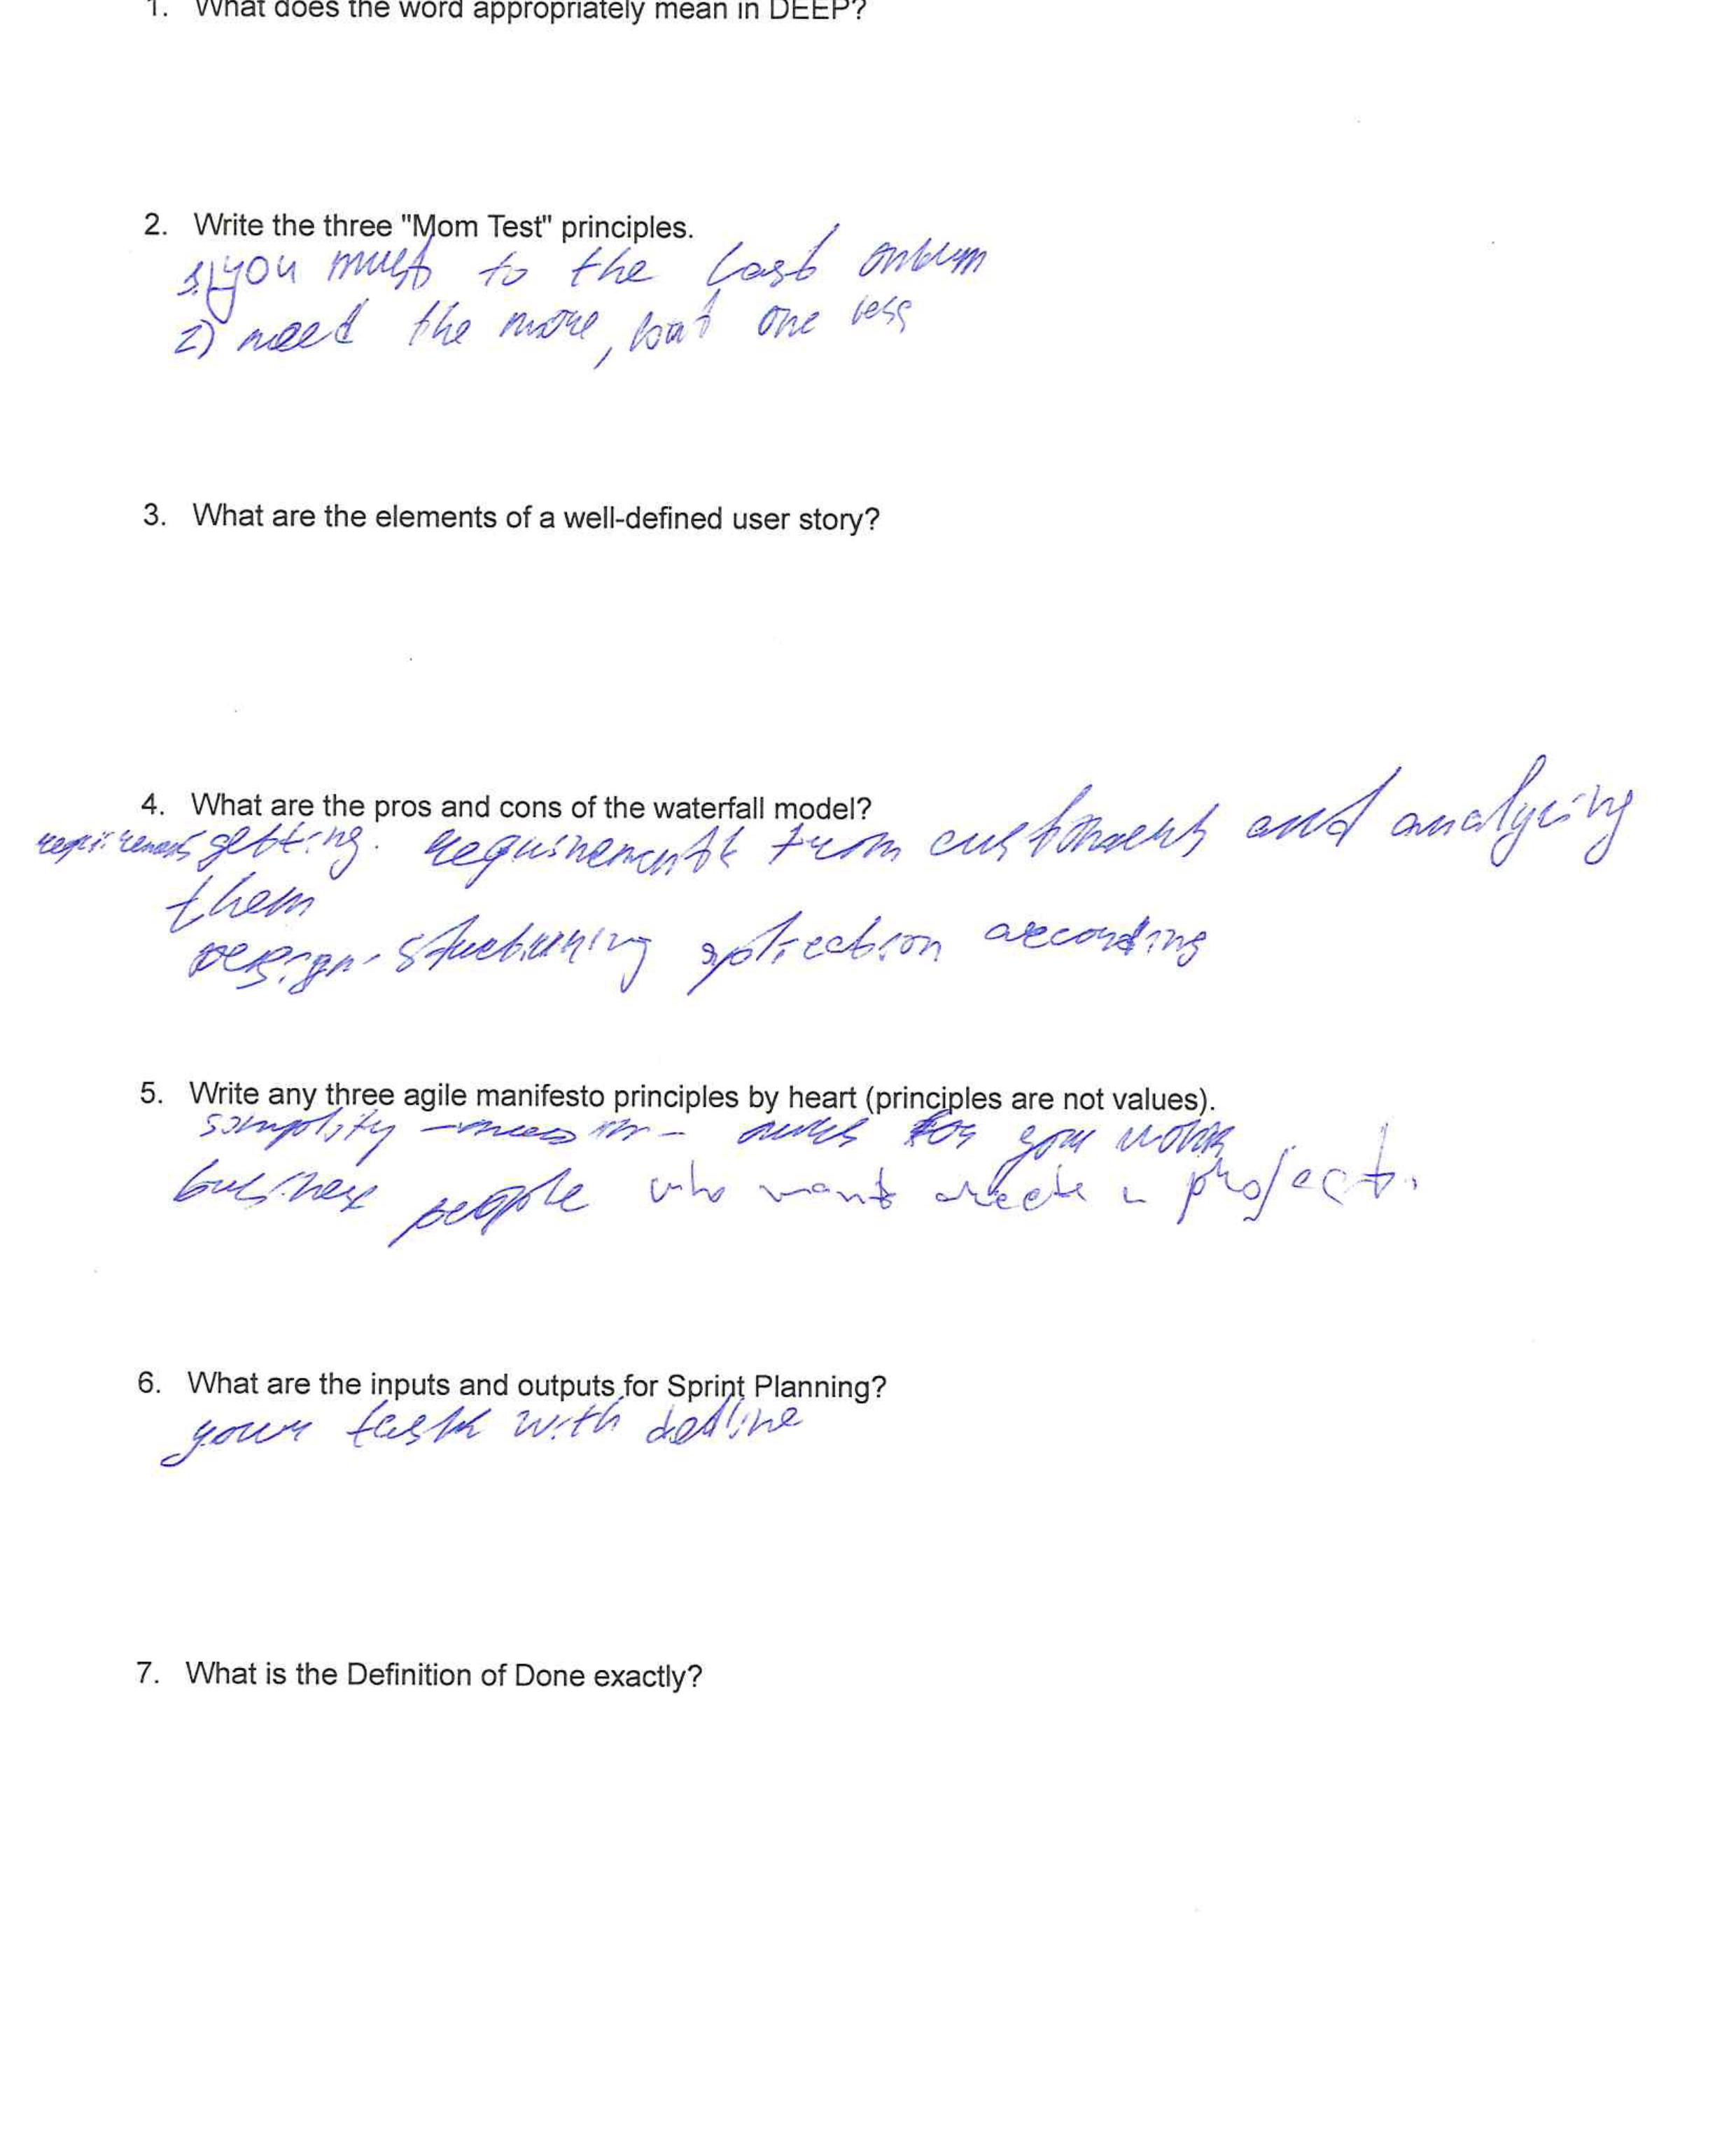 1. What does the word appropriately mean in DEEP?
2. Write the three "Mom Test" principles.
1) you must to the last
2) need the more, but one less
3. What are the elements of a well-defined user story?
4. What are the pros and cons of the waterfall model?
getting. requirements from customers and analycing
them
Design - structuring according
5. Write any three agile manifesto principles by heart (principles are not values).
for you work
business people who want create a project.
6. What are the inputs and outputs for Sprint Planning?
your task with dedline
7. What is the Definition of Done exactly?